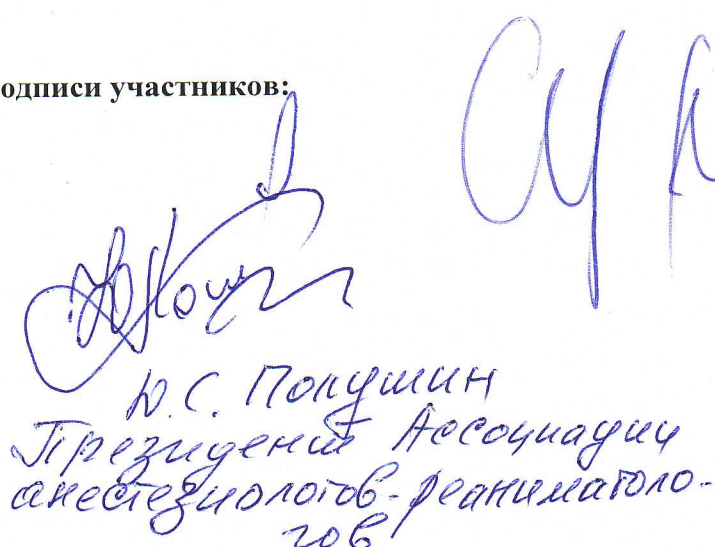 одписи участников:
Ю.С. Полушин
Президент Ассоциации
анестезиологов-реаниматоло-
гов